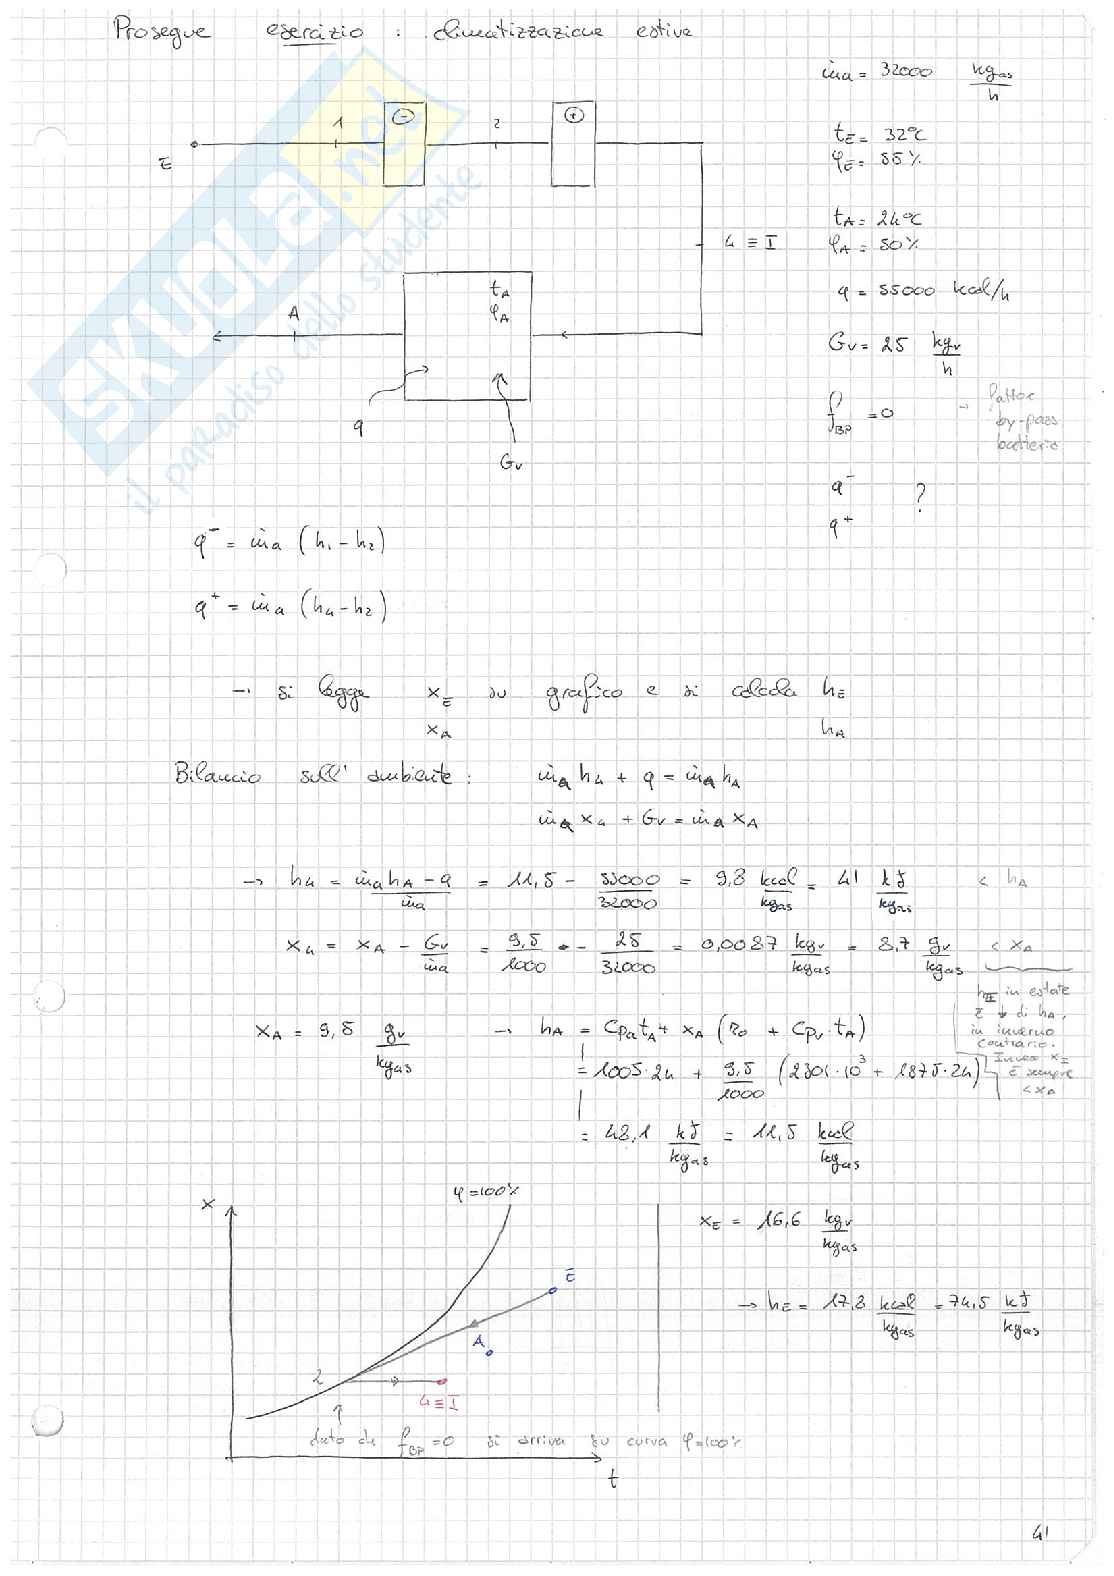 Prosegue esercizio : climatizzazione estiva
ṁa = 32000 kgas/h
tE = 32°C
φE = 55%
tA = 24°C
φA = 50%
q = 55000 kcal/h
Gv = 25 kgv/h
fBP = 0 → fattore
by-pass
batteria
q⁻
q⁺ ?
E 1 ⊖ 2 ⊕
4 ≡ I
tA
φA
A
q
Gv
SKUOLA.net
il paradiso dello studente
q⁻ = ṁa (h1 - h2)
q⁺ = ṁa (h4 - h2)
→ si legge xE su grafico e si calcola hE
xA hA
Bilancio sull' ambiente : ṁa h4 + q = ṁa hA
ṁa x4 + Gv = ṁa xA
→ h4 = (ṁa hA - q)/ṁa = 11,5 - 55000/32000 = 9,8 kcal/kgas = 41 kJ/kgas < hA
x4 = xA - Gv/ṁa = 9,5/1000 - 25/32000 = 0,0087 kgv/kgas = 8,7 gv/kgas < xA
in estate
è ↓ di hA,
in inverno
contrario.
Invece xI
è sempre
< xA
xA = 9,5 gv/kgas → hA = cpa tA + xA (r0 + cpv · tA)
= 1005·24 + 9,5/1000 (2501·10³ + 1875·24)
= 48,1 kJ/kgas = 11,5 kcal/kgas
x φ=100%
xE = 16,6 kgv/kgas
→ hE = 17,8 kcal/kgas = 74,5 kJ/kgas
E
A
2
4 ≡ I
dato che fBP = 0 si arriva su curva φ=100%
t
41